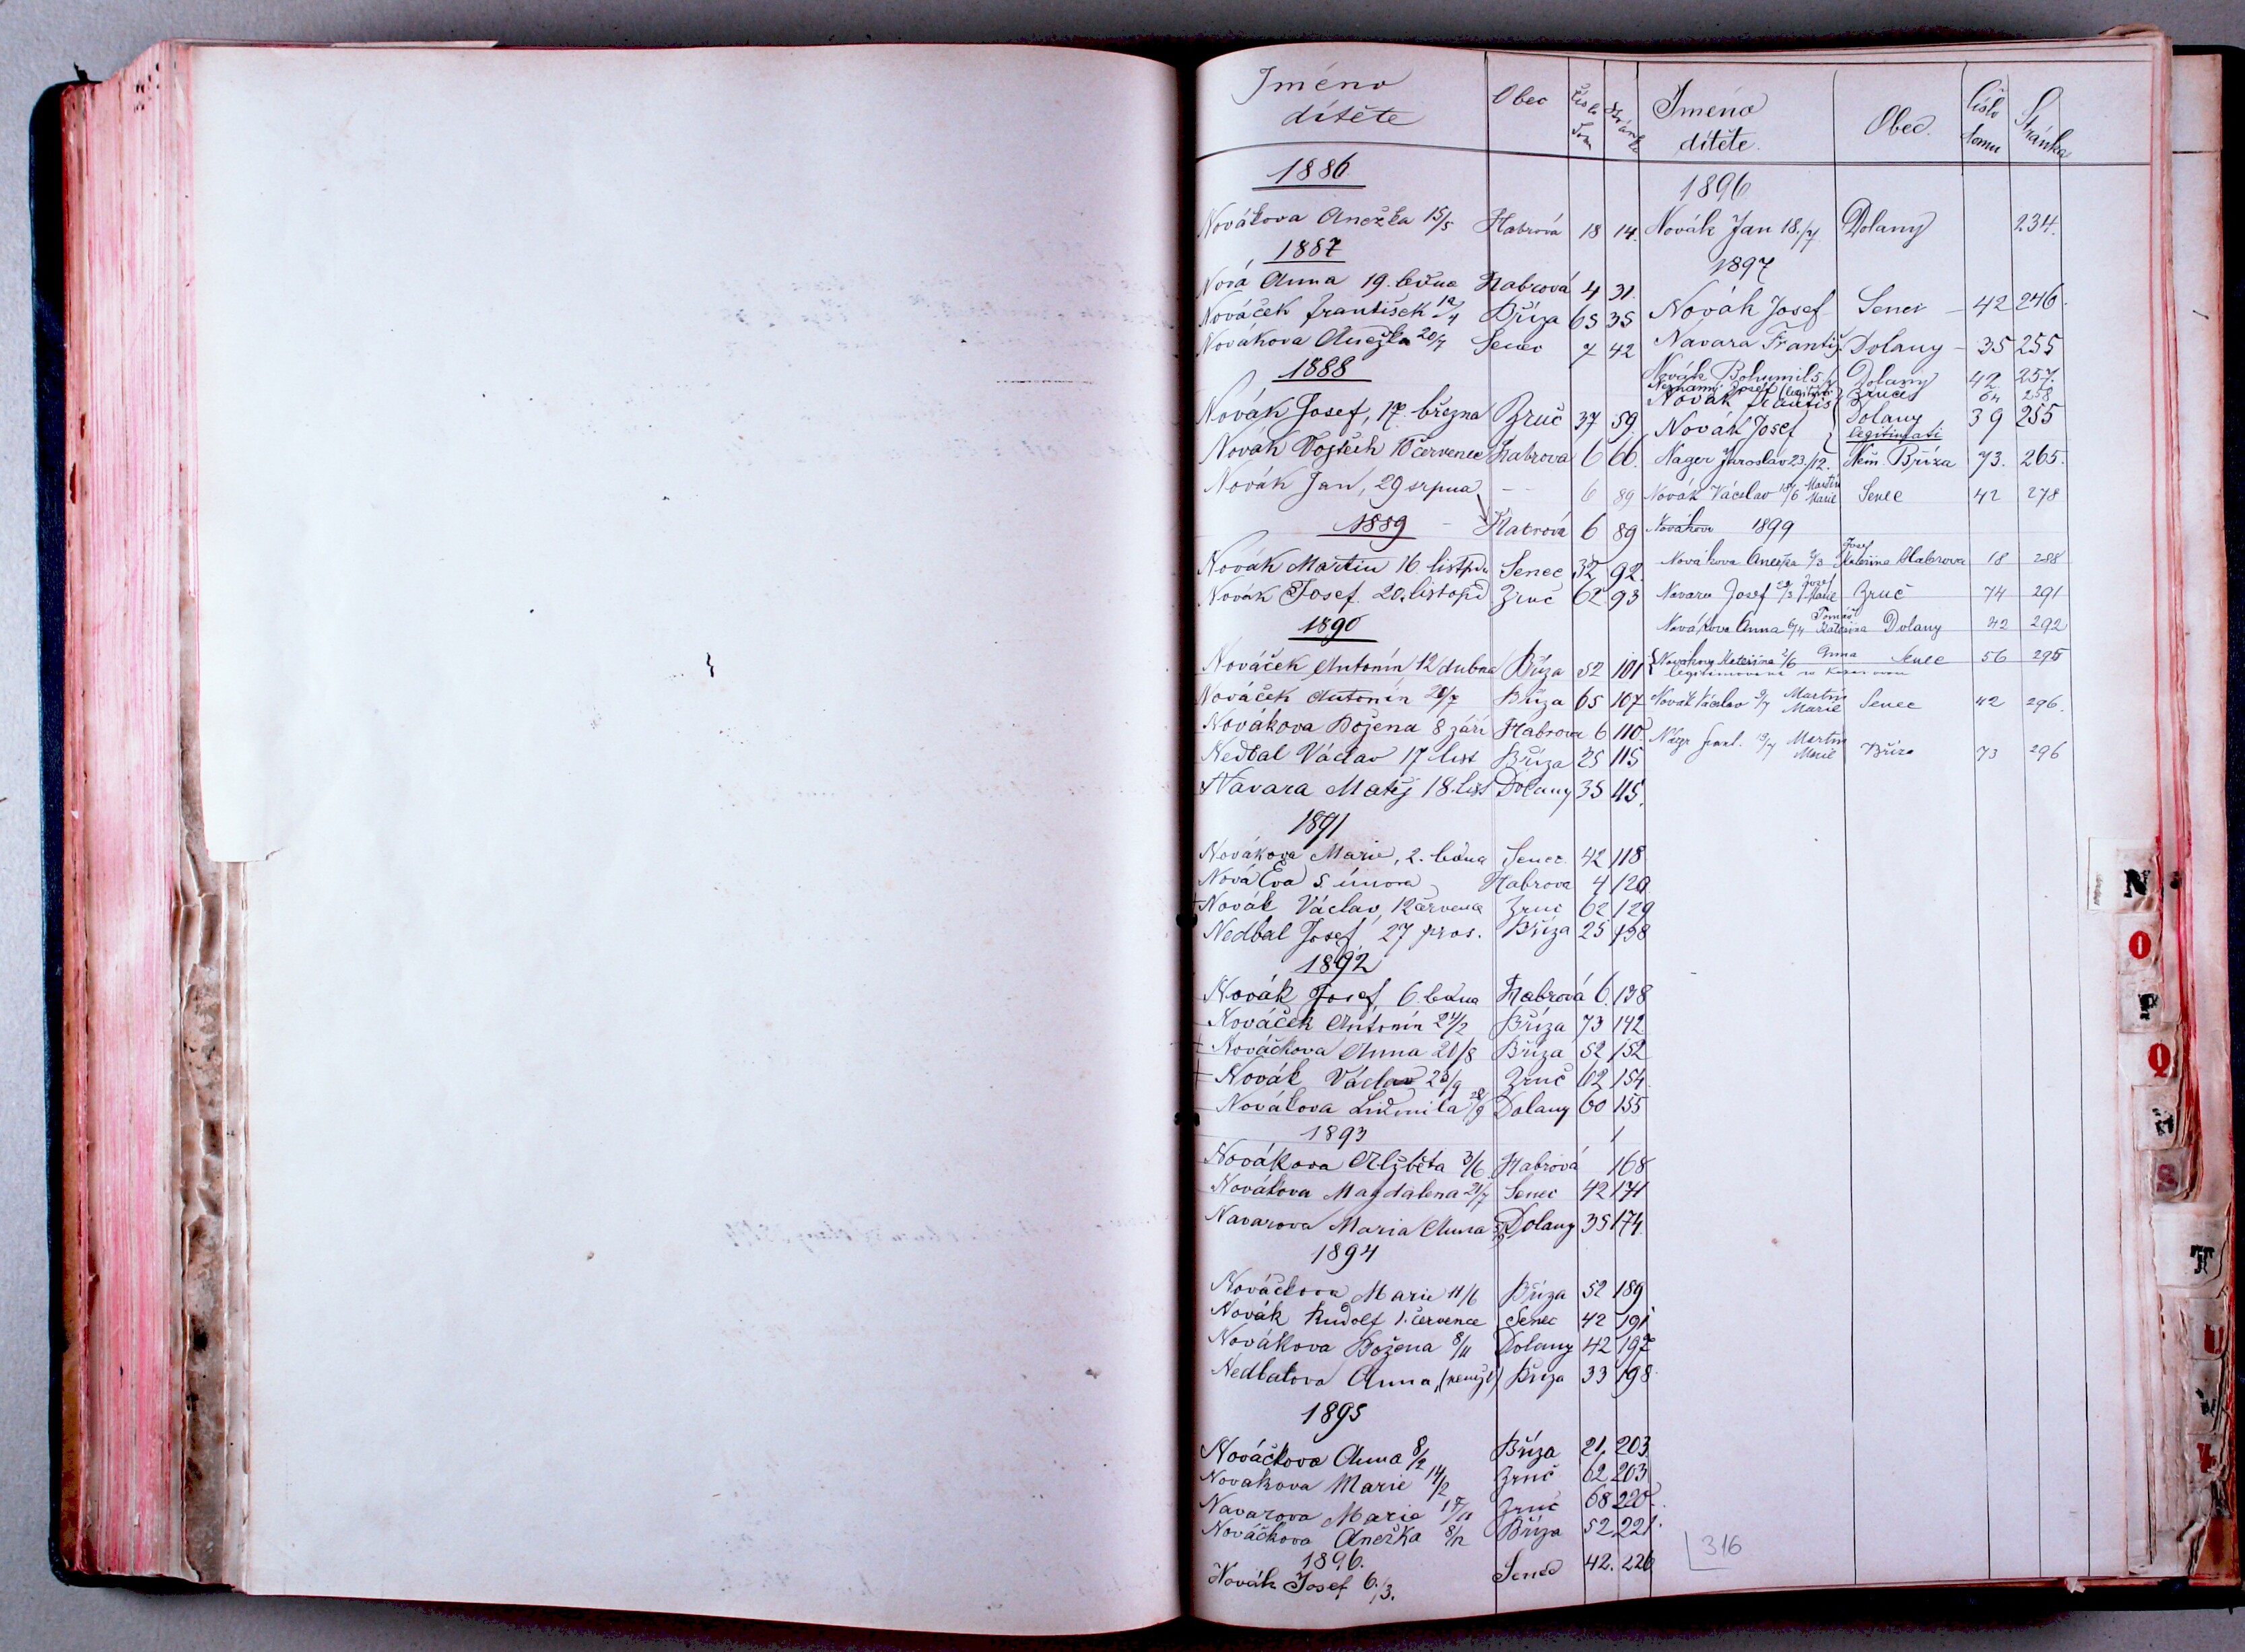 Jméno dítěte Obec Číslo Dom Stránka
1886
Novákova Anežka 15/5 Habrová 18 14.
1887
Nová Anna 19. ledna Habrová 4 31.
Nováček František 12/4 Bříza 65 35
Novákova Anežka 20/7 Senec 7 42
1888
Novák Josef, 17. března Zruč 37 59.
Novák Vojtěch 10 červenec Habrova 6 66.
Novák Jan, 29 srpna — — 6 89
1889 — Habrová 6 89
Novák Martin 16. listpdu Senec 32 92.
Novák Josef. 20. listopd Zruč 62 93
1890
Nováček Antonín 12 dubna Bříza 52 101
Nováček Antonín 28/7 Bříza 65 107
Novákova Božena 8 září Habrova 6 110
Nedbal Václav 17 list Bříza 25 115
Navara Matěj 18. list Dolany 35 115.
1891
Novákova Marie, 2. ledna Senec 42 118
Nová Eva 5. února Habrova 4 120
Novák Václav, 12 června Zruc 62 129
Nedbal Josef, 27 pros. Bříza 25 138
1892
Novák Josef, 6. ledna Habrová 6. 138
Nováček Antonín 24/2 Bříza 73 142
Nováčkova Anna 21/8 Bříza 52 152
Novák Václav 23/9 Zruč 62 154.
Novákova Lidmila 28/9 Dolany 60 155
1893
Novákova Alžběta 3/6 Habrová 168
Novákova Magdalena 21/7 Senec 42 171
Navarova Maria Anna Dolany 35 174.
1894
Nováčkova Marie 11/6 Bříza 52 189
Novák Rudolf 1. července Senec 42 191
Novákova Božena 8/11 Dolany 42 197
Nedbalova Anna, Bříza 33 198.
1895
Nováčkova Anna 8/2 Bříza 21. 203
Novakova Marie 14/2 Zruč 62 203
Navarova Marie Zruč 68 220.
Nováčkova Anežka 8/12 Bříza 52 221.
1896.
Novák Josef 6./3. Senec 42. 226
Jméno dítěte. Obec. Číslo domu Stránka
1896
Novák Jan 18./7. Dolany 234.
1897
Novák Josef Senec — 42 246.
Navara Františ. Dolany — 35 255
Novák Bohumil 5/ Dolany 42 257.
Neznamý Josef Zruč 64 258
Novák Františ
Novák Josef Dolany 39 255
legitimati
Nager Jaroslav 23./12. Něm. Bříza 73. 265.
Novák Václav 18/6 Martin Marie Senec 42 278
Novákova 1899
Novákova Anežka 2/3 Josef Kateřina Habrova 18 288
Navara Josef Josef Marie Zruč 74 291
Novákova Anna 6/4 Tomáš Kateřina Dolany 42 292
Novákova Kateřina 2/6 Anna Senec 56 295
legitimovana
Novák Václav 9/7 Martin Marie Senec 42 296.
Nágr Frant. 19/7 Martin Marie Bříza 73 296
316
N
O
P
Q
R
S
T
U
V